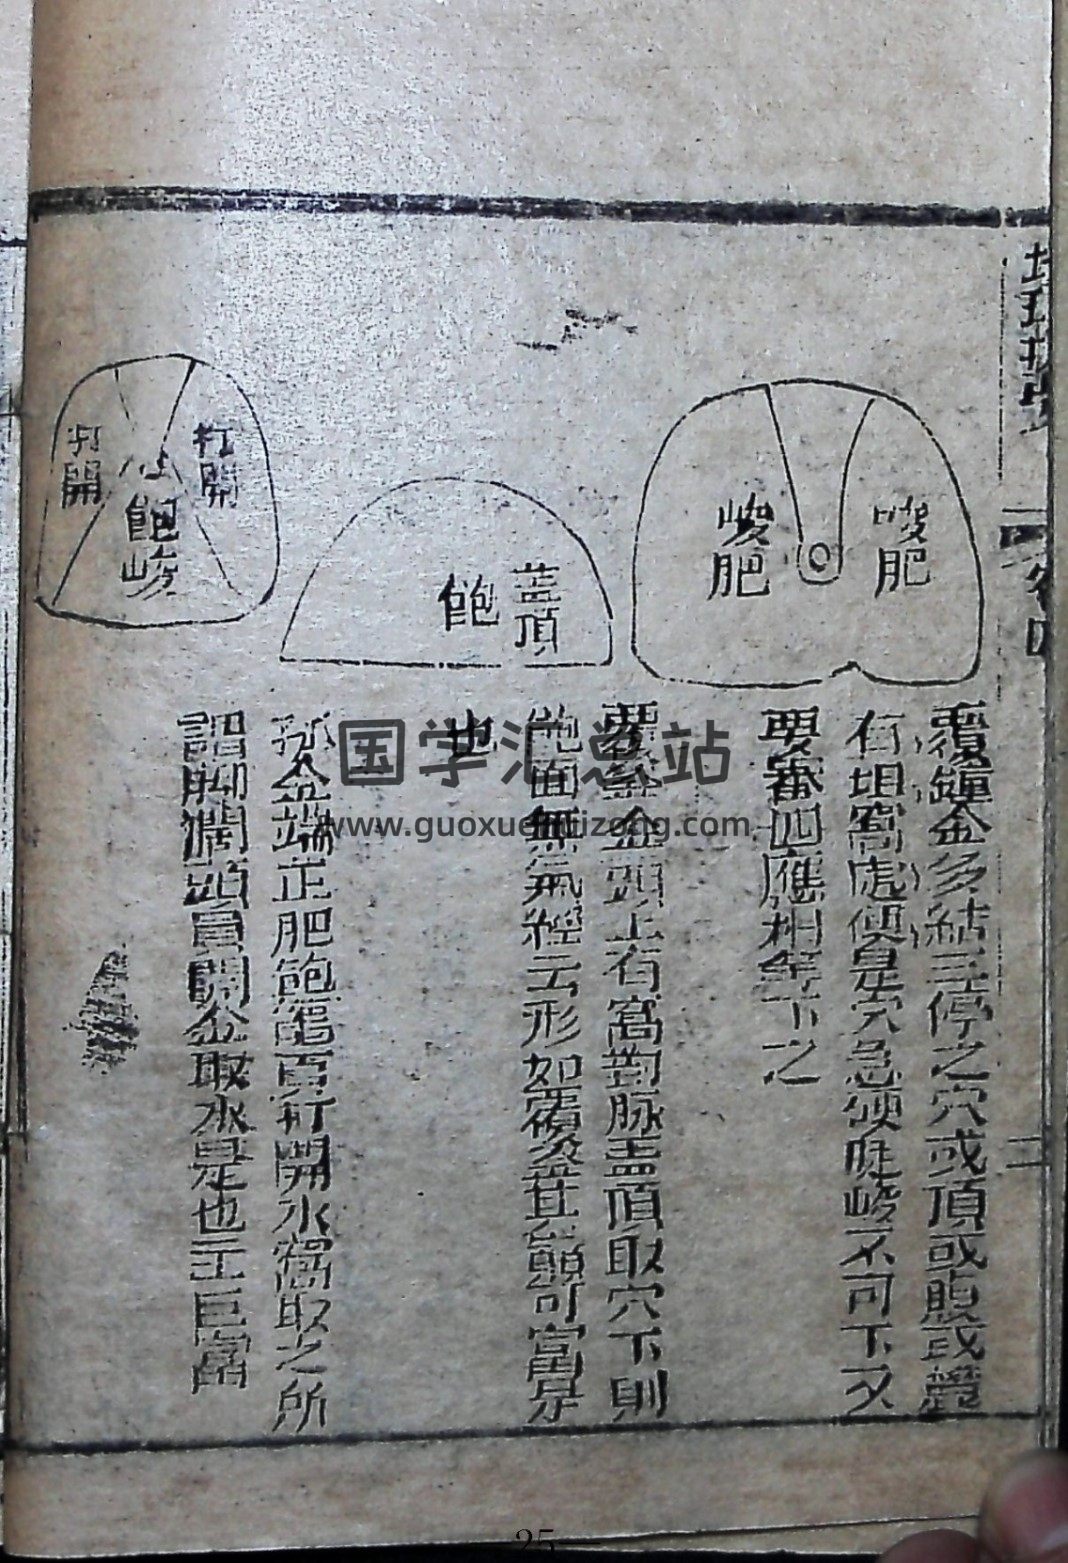 峻肥
峻肥
覆鐘金多結三停之穴或頂或腹或麓
有坦窩處便是穴急硬陡峻不可下又
要審四應相牟下之
蓋頂
飽
覆釜金頭上有窩對脉盖頂取穴下則
飽面無氣經云形如覆釜其巔可富是
也
打開
飽峻
打開
孤金端正肥飽 頁打開水窩取之所
謂脚濶頭員開金取水是也主巨富
国学汇总站
www.guoxuehuizong.com
25